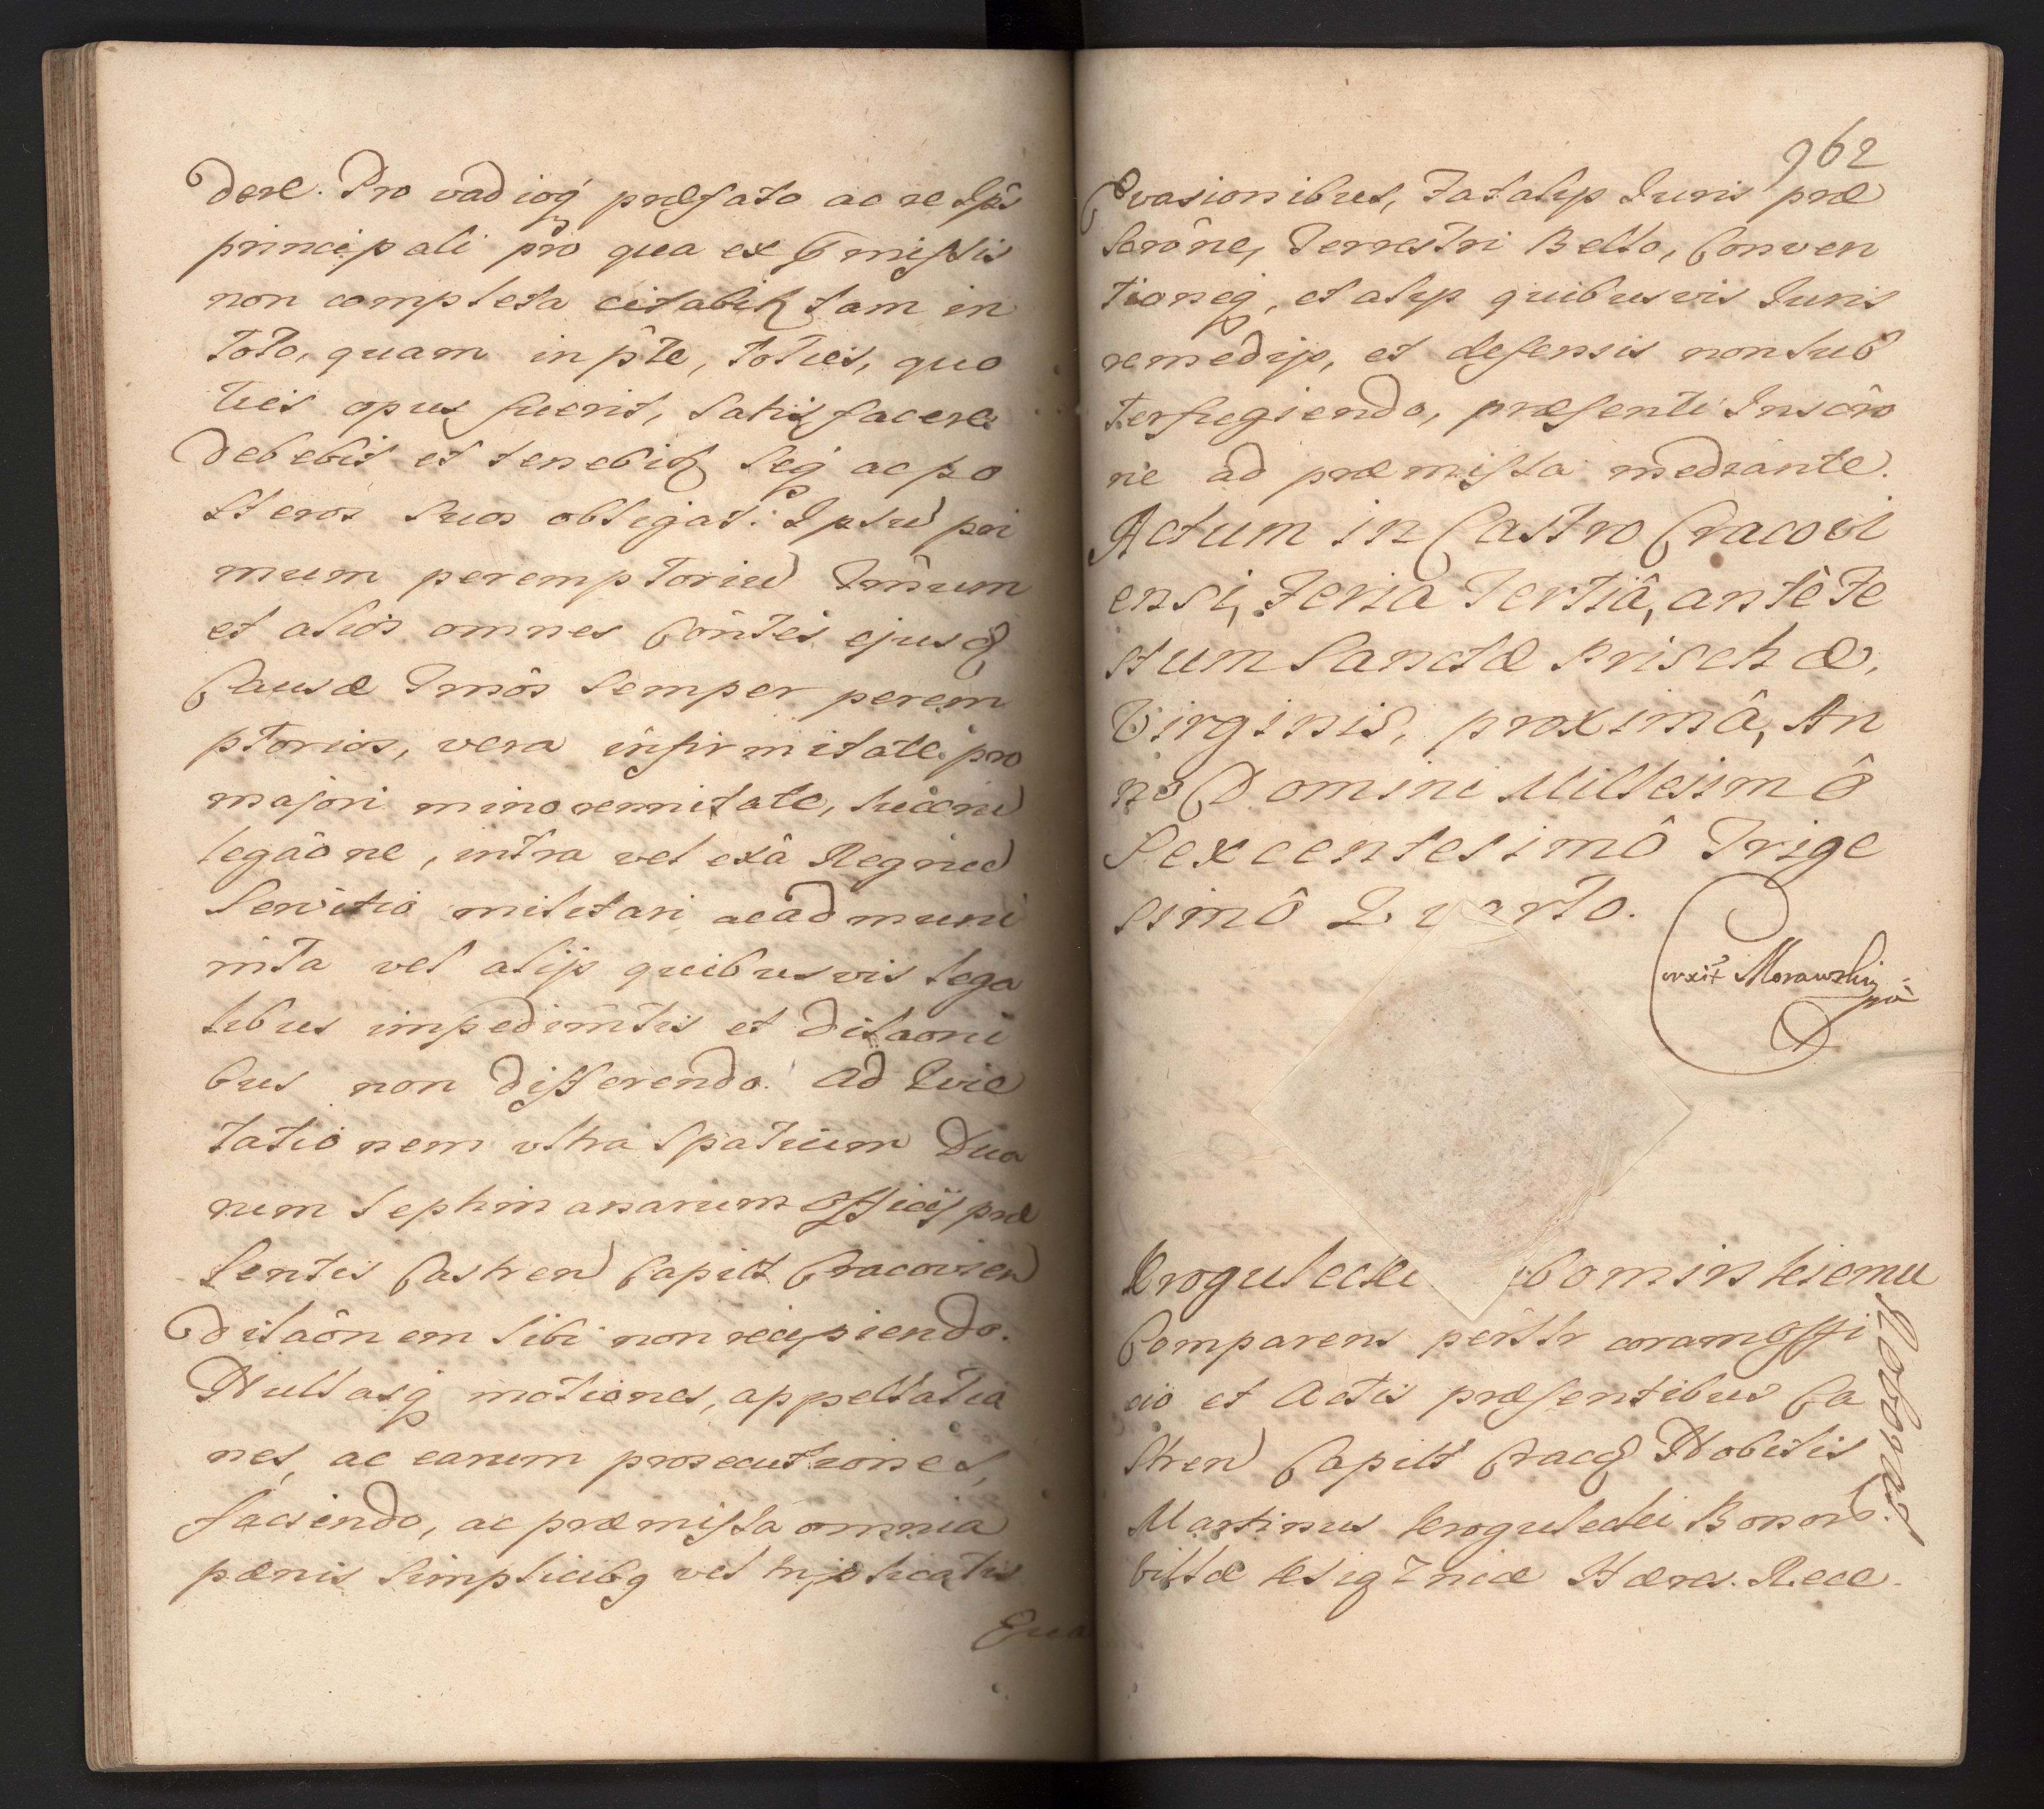 dere. Pro vadioq præfato ac re Ipŝ
principali pro qua ex præmissis
non completa citabitur tam in
toto, quam in pte, toties, quo
ties opus fuerit, satisfacere
debebit et tenebitur seq ac po
steros suos obligat: Ipsu pri
mum peremptoriu Tmûm
et alios omnes Contes ejusd
Causæ Tmôs semper perem
ptorios, vera infirmitate pro
majori minorennitate,
legâone, intra vel exâ Regnu
servitio militari ac ad muni
mta vel alijs quibusvis lega
libus impedimtis et dilaoni
bus non differendo. Ad Qvie
tationem vltra spatium Dua
rum septimanarum Officij præ
sentis Castren Capitt Cracovien
dilaônem sibi non recipiendo.
Nullasq motiones, appellatio
nes, ac earum prosecutiones,
faciendo, ac præmissa omnia
pænis simplicibq vel triplicatis
Eva
962
Evasionibus, fatalip Juris præ
scrône, Terrestri Bello, Conven
tioneq, et alijs quibusvis Juris
remedijs, et defensis non sub
terfugiendo, præsenti Inscrô
ne ad præmissa mediante.
Actum in Castro Cracovi
ensi, Feria Tertiâ, ante Fe
stum Sanctæ Prischæ,
Virginis, proximâ, An
nô Domini Millesimô
Sexcentesimô Trige
simô Qvarto.
Corrxit Morawski
mp
Krogulecki bominskiemu
Roborat
Comparens perstr coram Offi
cio et Actis præsentibus Ca
stren Capitt Cracq Nobilis
Martinus Krogulecki Bonor
villæ Ksiąznice Hæres. Reco